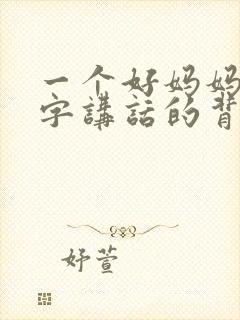 一个好妈妈
字講話的背
妤萱